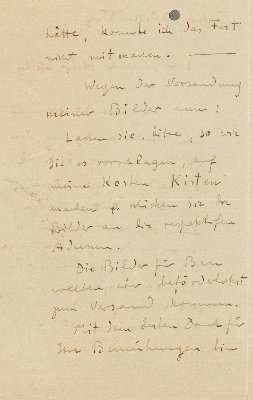 hätte, konnte ich das Fest
nicht mitmachen. —
Wegen der Versendung
meiner Bilder nun:
Lassen Sie, bitte, so wie
Sie es vorschlagen, auf
meine Kosten Kisten
machen & schicken Sie die
Bilder an die respektifen
Adressen.
Die Bilder für Bern
sollten sehr beförderlichst
zum Versand kommen.
Mit dem besten Dank für
Ihre Bemühungen bin